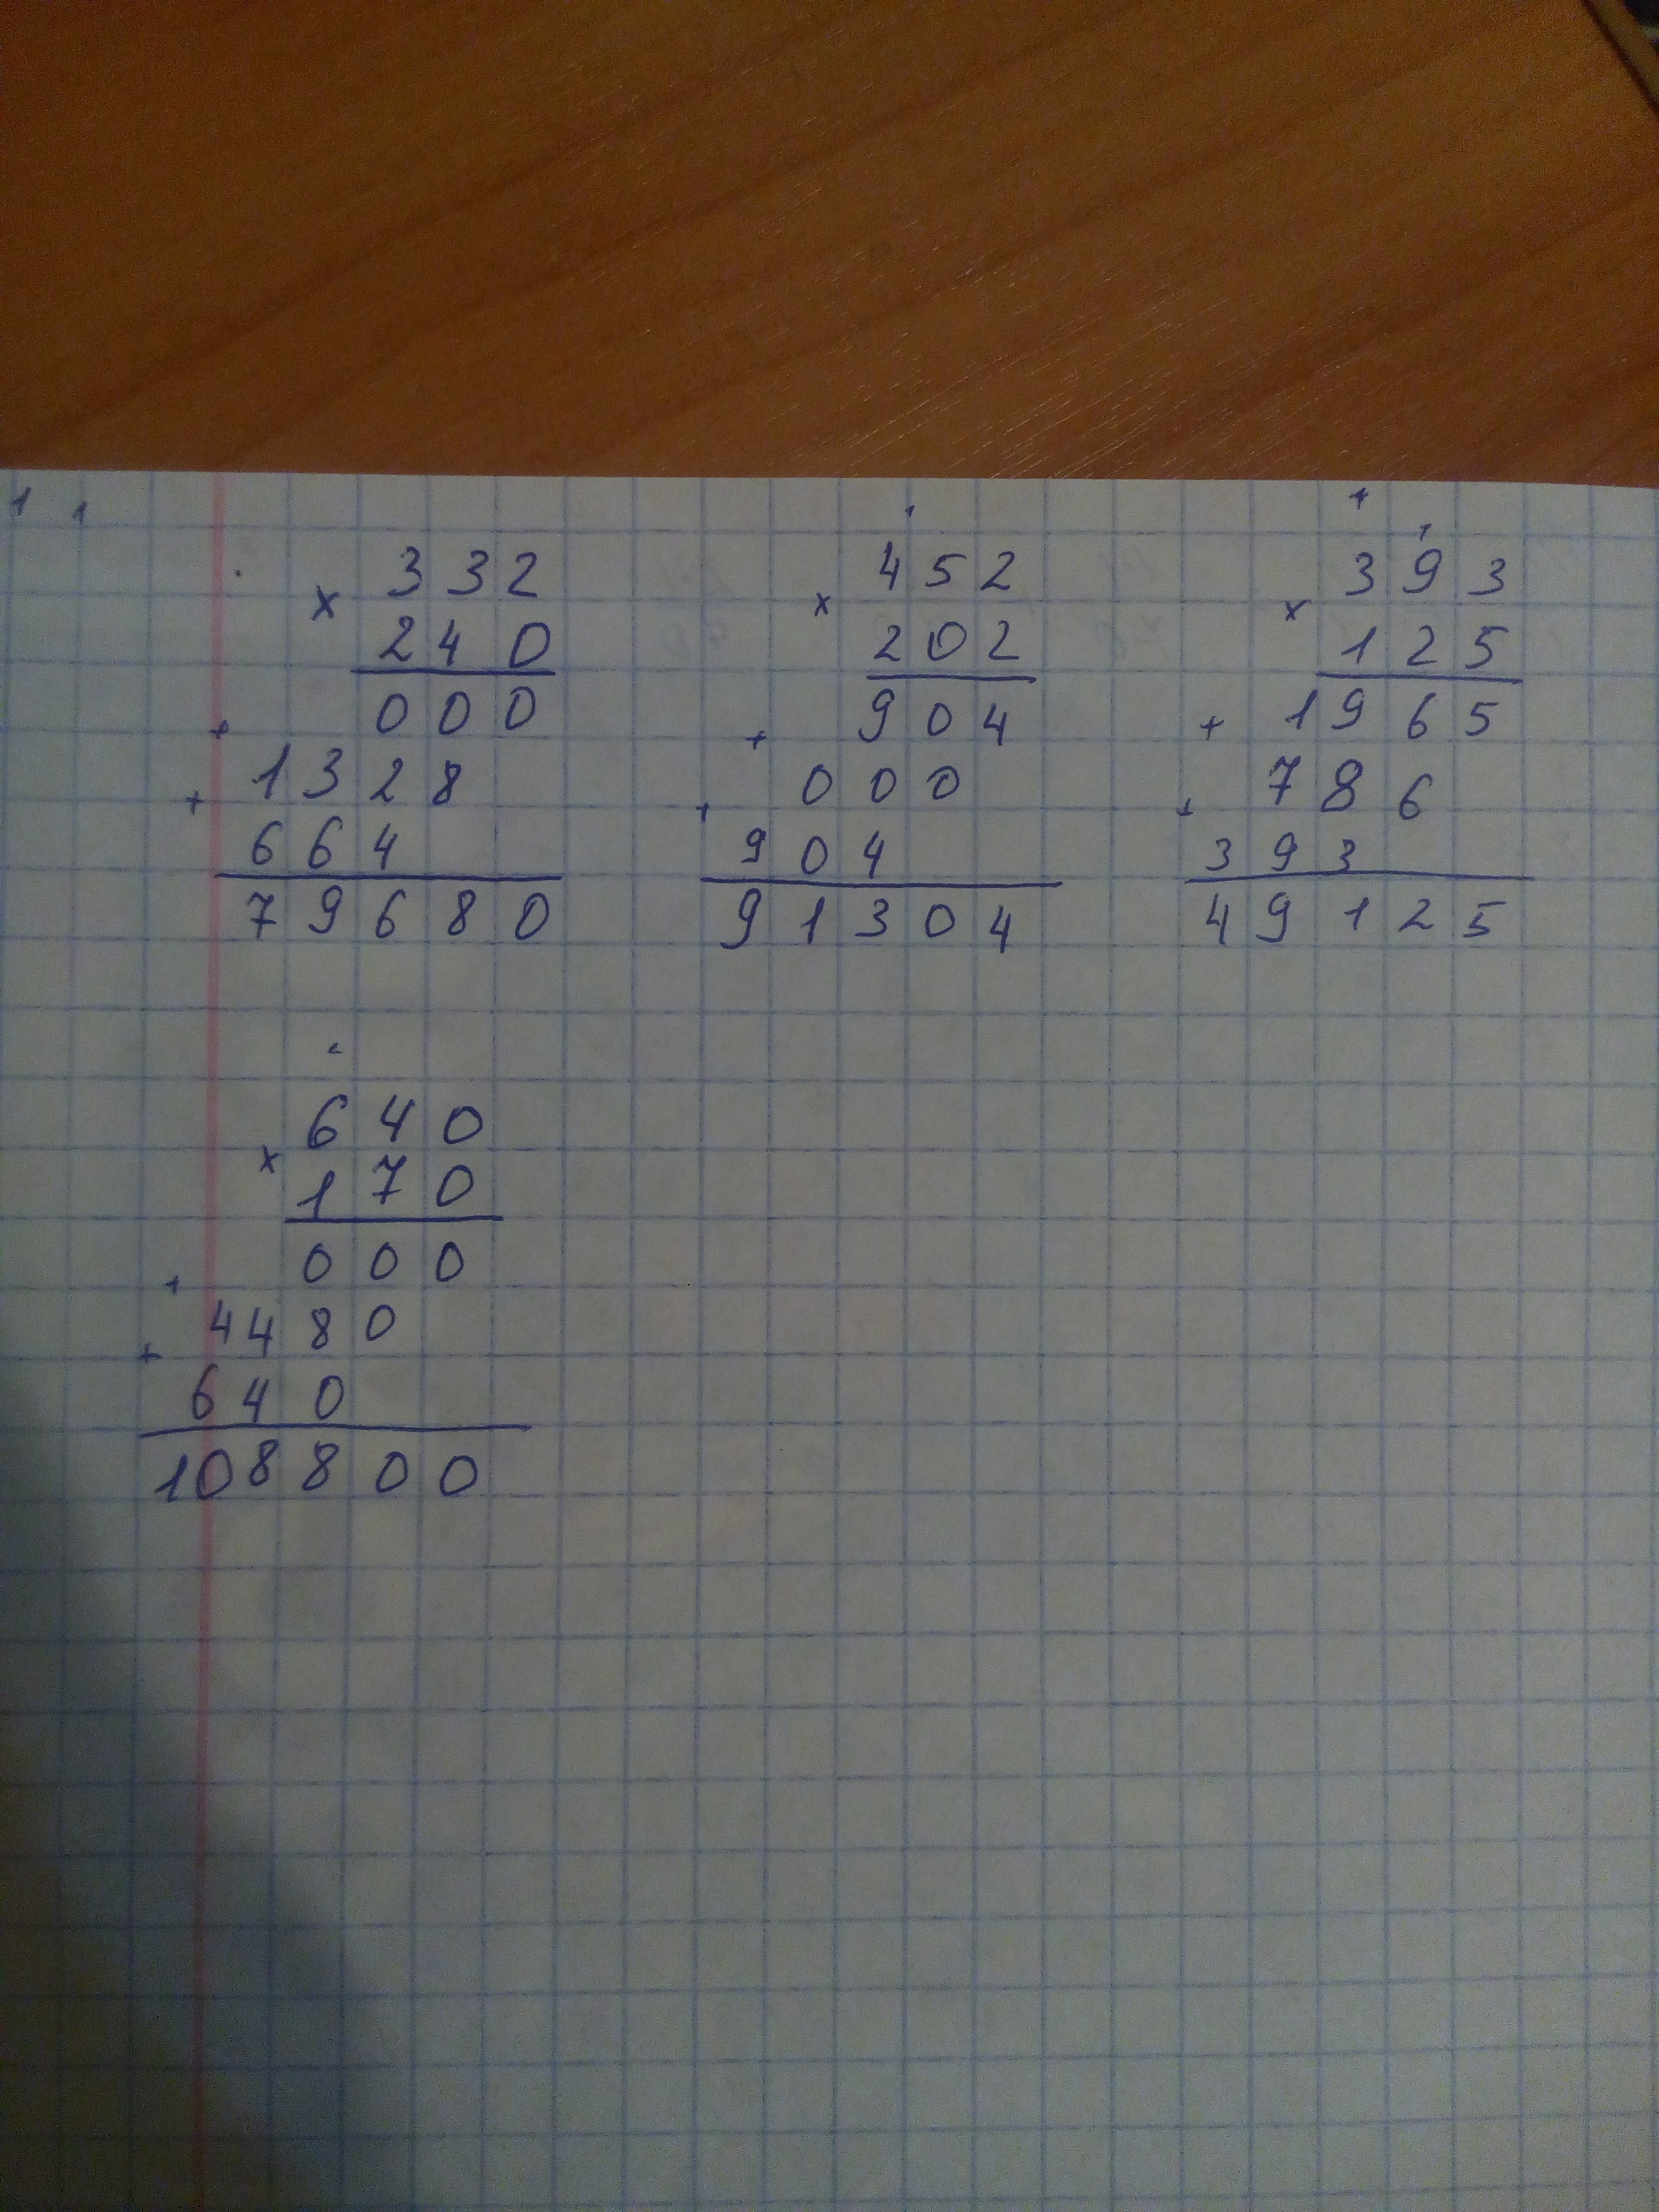 1 1
1
1
1
332
x
240
000
+
1328
+
664
79680
452
x
202
904
+
000
+
904
91304
393
x
125
1965
+
786
+
393
49125
640
x
170
000
+
4480
+
640
108800